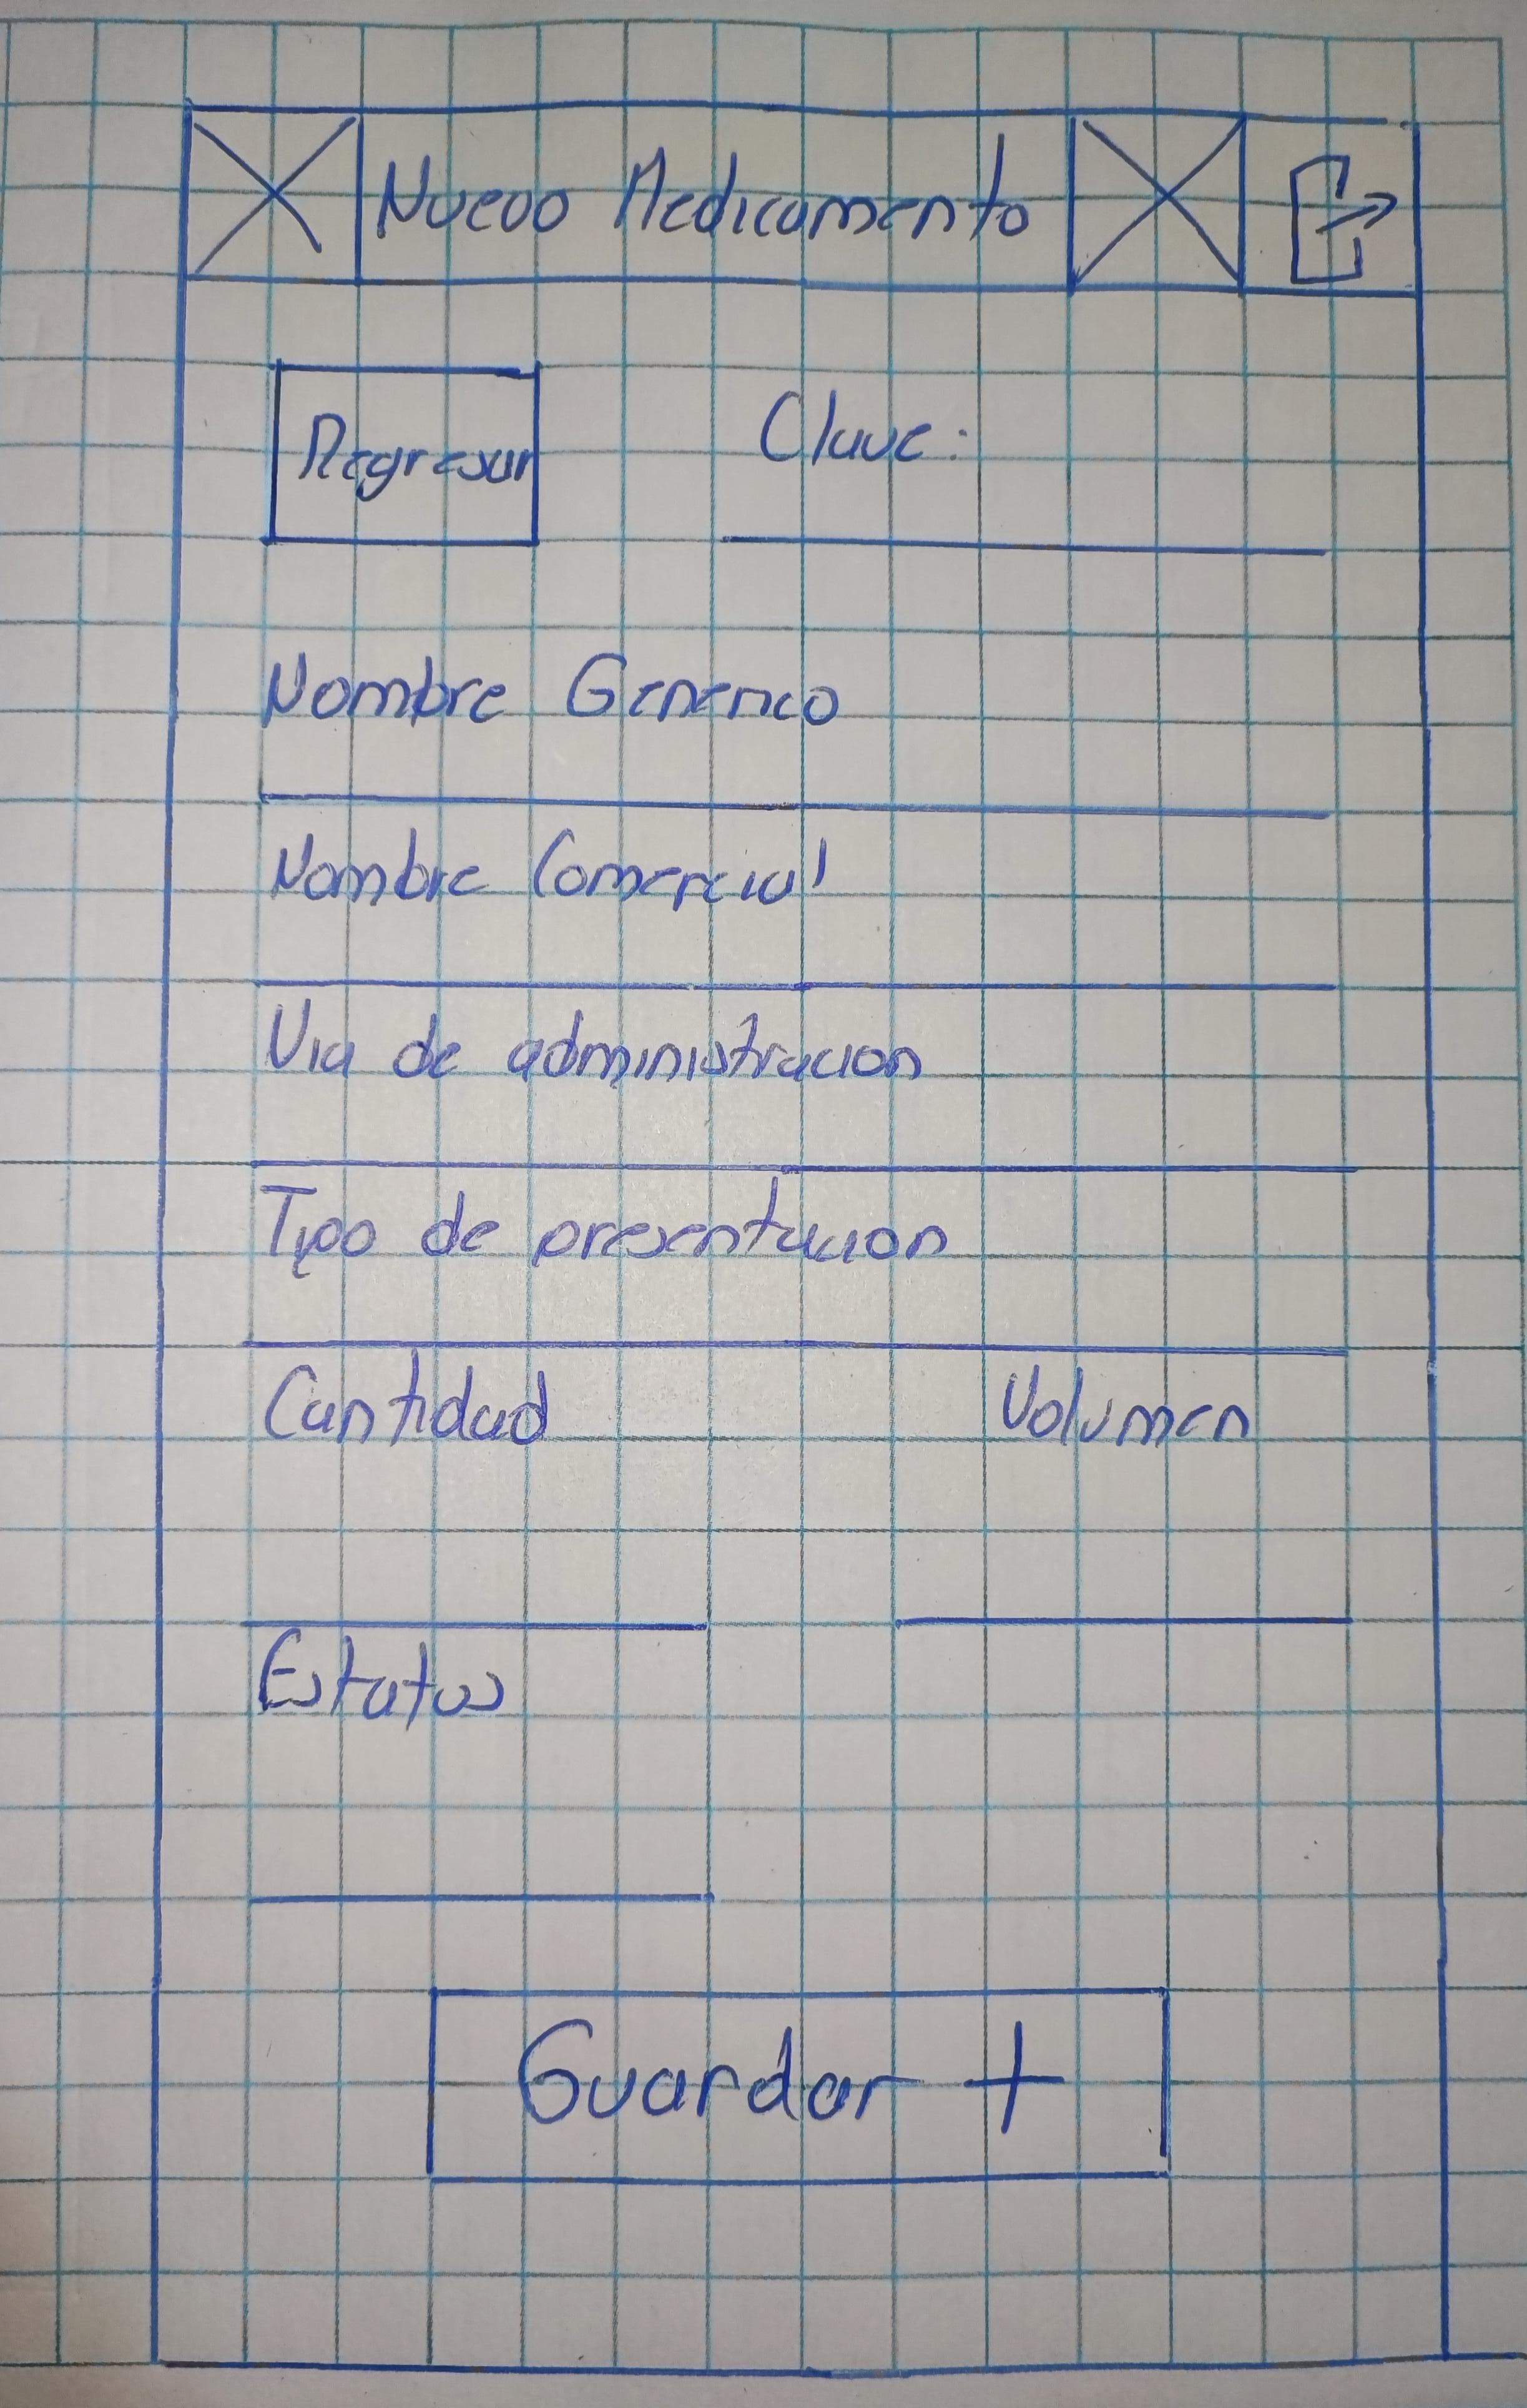 Nuevo Medicamento
Regresar
Clave:
Nombre Generico
Nombre Comercial
Via de administracion
Tipo de presentacion
Cantidad Volumen
Estatus
Guardar +